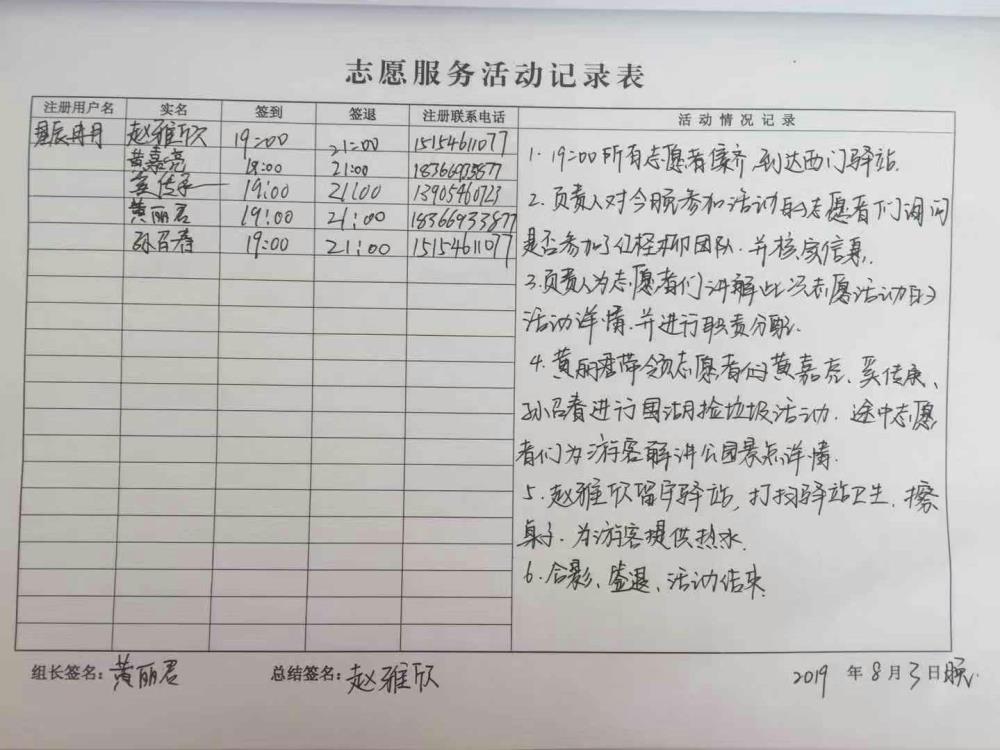 志愿服务活动记录表
注册用户名 实名 签到 签退 注册联系电话 活动情况记录
赵雅欣 19:00 21:00 15154611077
黄嘉亮 19:00 21:00 18366933877
19:00 21:00 13905460723
黄丽君 19:00 21:00 18366933877
孙召春 19:00 21:00 15154611077
1. 19:00所有志愿者集齐,到达西门驿站.
2. 负责人对今晚参加活动的志愿者们询问
是否参加了红柽柳团队.并核实信息.
3.负责人为志愿者们讲解此次志愿活动的
活动详情.并进行职责分配.
4. 黄丽君带领志愿者们黄嘉亮、奚传康、
孙召春进行围湖捡垃圾活动.途中志愿
者们为游客解讲公园景点详情.
5. 赵雅欣留守驿站,打扫驿站卫生.擦
桌子.为游客提供热水.
6. 合影、签退、活动结束.
组长签名:黄丽君 总结签名:赵雅欣 2019年8月3日晚.